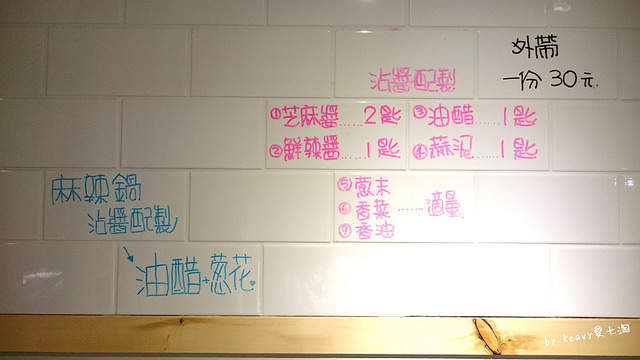 外帶
一份 30元.
沾醬配製
①芝麻醬......2匙
②鮮辣醬......1匙
③油醋......1匙
④蒜泥......1匙
⑤蔥末
⑥香菜......適量
⑦香油
麻辣鍋
沾醬配製
油醋+蔥花
by keavy愛七淘